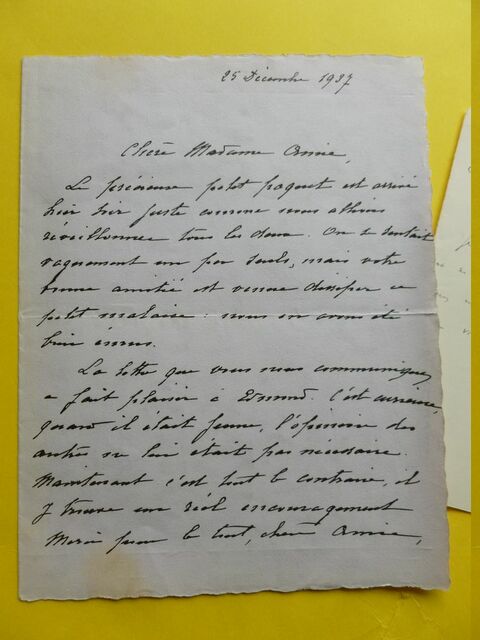 25 Décembre 1937
Chère Madame Amie,
Le précieuse petit paquet est arrivé
hier soir juste comme nous allions
réveillonner tous les deux. On se sentait
vaguement un peu seuls, mais votre
bonne amitié est venue dissiper ce
petit malaise : nous en avons été
bien émus.
La lettre que vous nous communiquez
a fait plaisir à Edmond. C'est curieux,
quand il était jeune, l'opinion des
autres ne lui était pas nécessaire.
Maintenant c'est tout le contraire, il
y trouve un réel encouragement
Merci pour le tout, chère Amie,